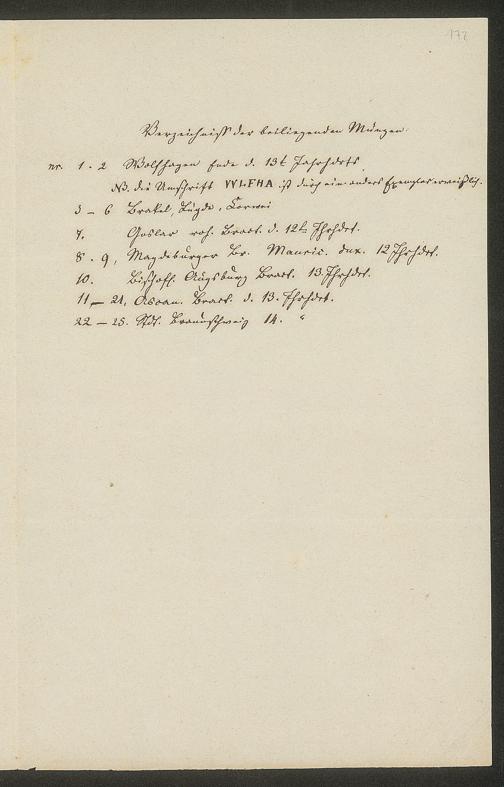 172
Verzeichniß der beiliegenden Münzen.
nr. 1 - 2 Wolfhagen Ende d. 13t Jahrhdrts
NB. die Umschrift VVLFHA ist durch ein anderes Exemplar ersichtlich.
3 - 6 Brakel, Lügde, Corvei
7. Goslar Bract. d. 12t Jhrhdrt.
8 - 9, Magdeburger Br. Mauric. dux. 12 Jhrhdrt.
10. Bischöfl. Augsburg Bract. 13 Jhrhdrt.
11 - 21, Ascan. Bract. d. 13. Jhrhdrt.
22 - 25. Stdt. Braunschweig 14. "